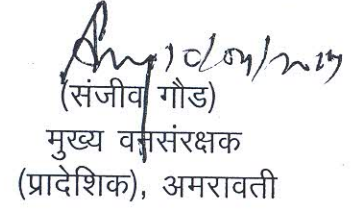 (संजीव गौड)
मुख्य वनसंरक्षक
(प्रादेशिक), अमरावती